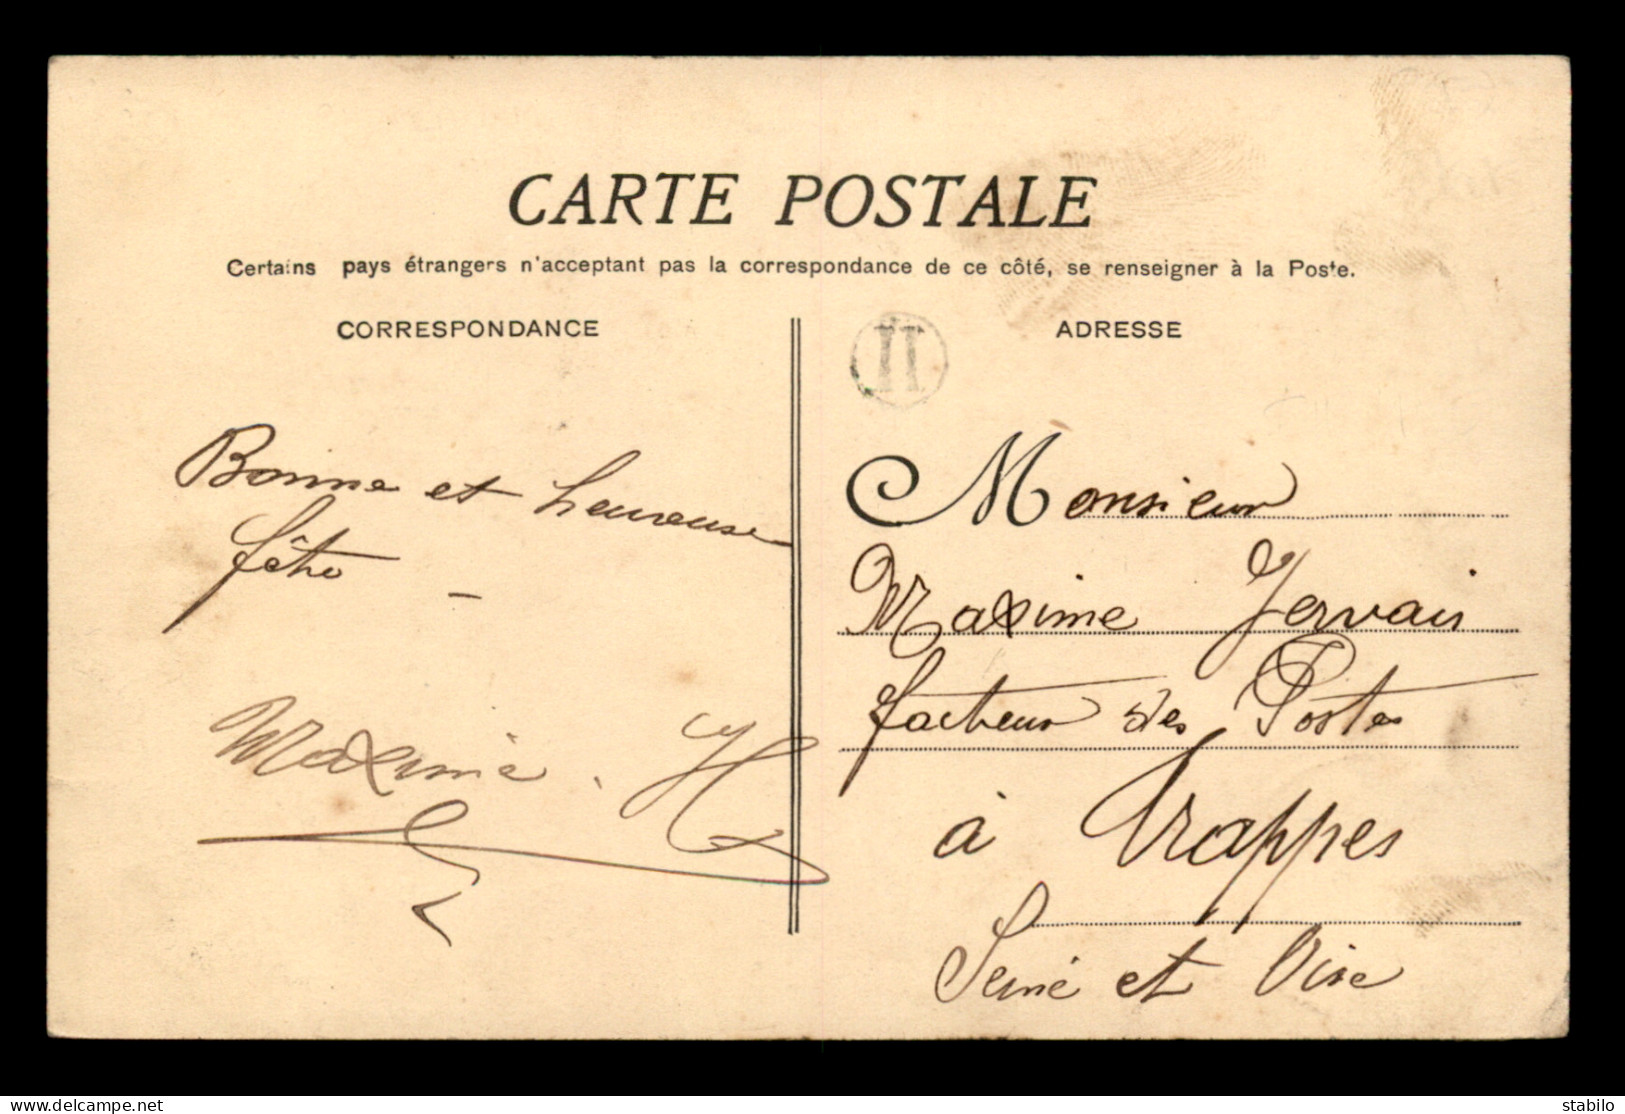 CARTE POSTALE
Certains pays étrangers n'acceptant pas la correspondance de ce côté, se renseigner à la Poste.
CORRESPONDANCE
ADRESSE
H
Bonne et heureuse
fête -
Maxime . H
Monsieur
Maxime Jervais
facteur des Postes
à Trappes
Seine et Oise
www.delcampe.net
stabilo